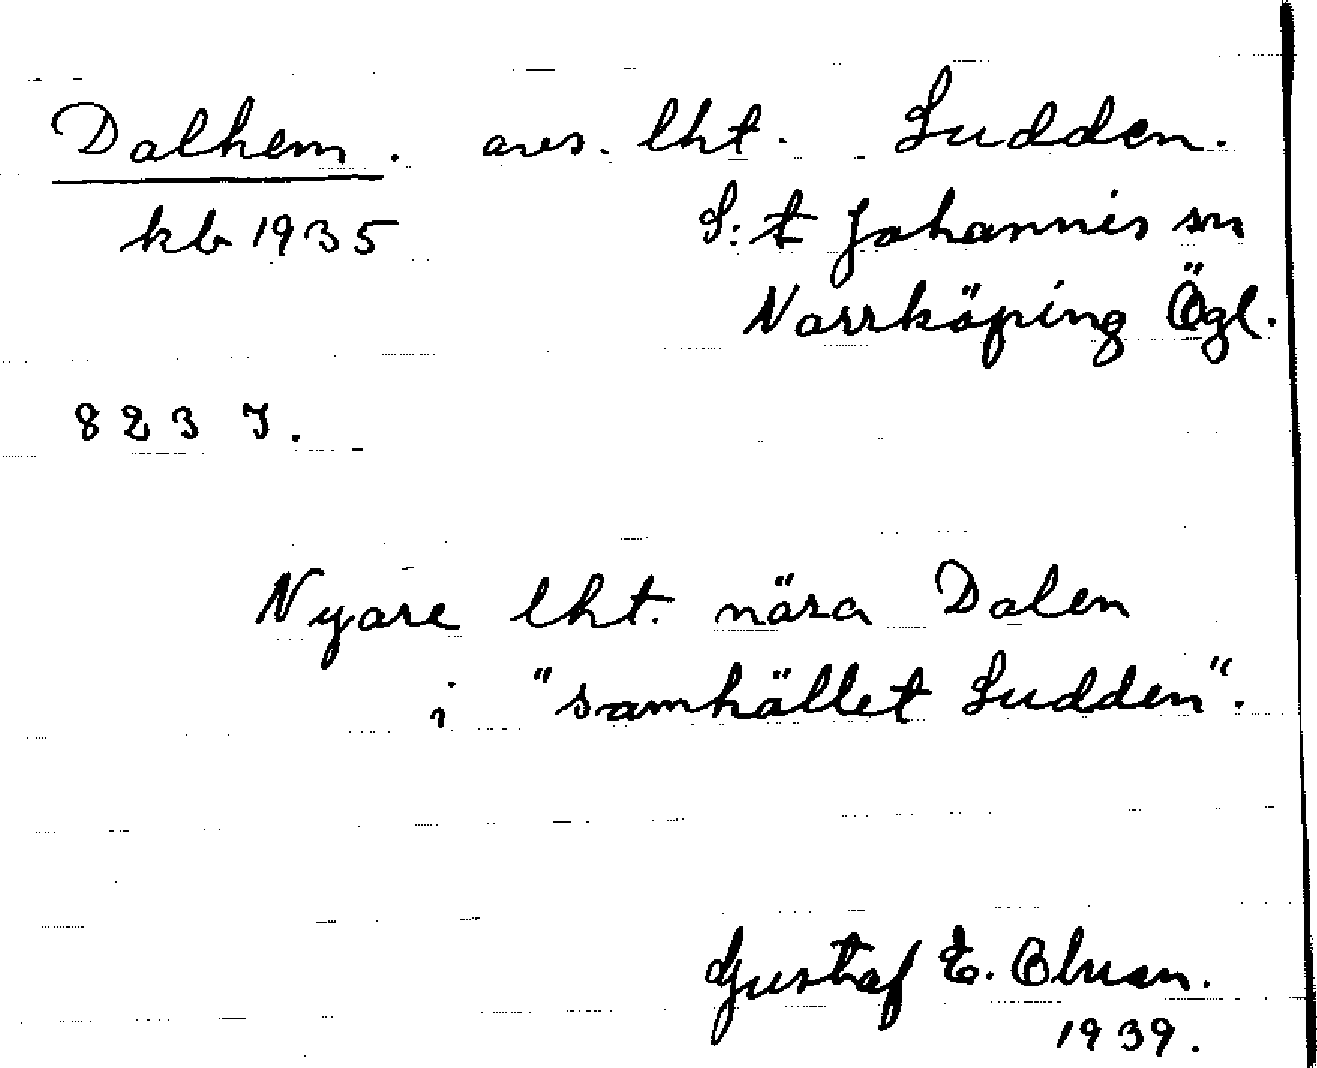 Dalhem. avs. lht. Sudden.
kb 1935 S:t Johannis sn
Norrköping Ögl.
8237.
Nyare lht. nära Dalen
i "samhället Sudden".
Gustaf E.
1939.